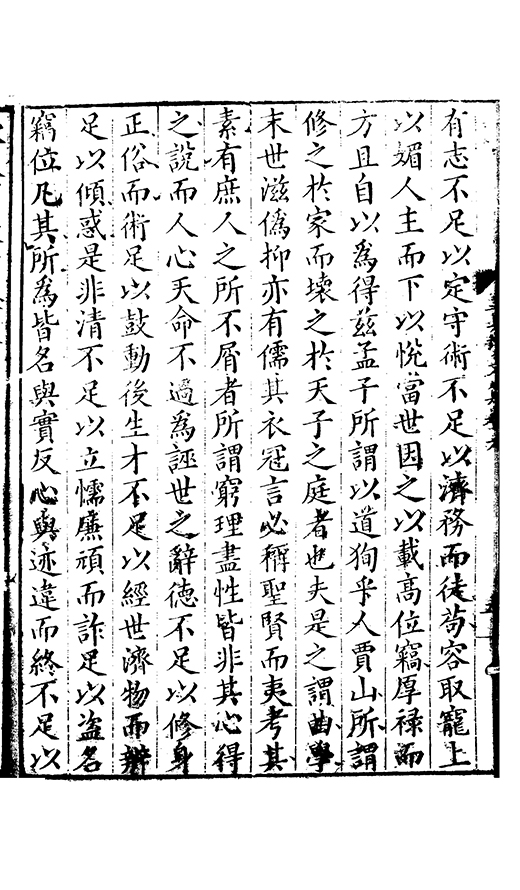 有志不足以定守術不足以濟務而徒苟容取寵上
以媚人主而下以悅當世因之以載高位竊厚祿而
方且自以為得茲孟子所謂以道狥乎人賈山所謂
修之於家而壞之於天子之庭者也夫是之謂曲學
末世滋僞抑亦有儒其衣冠言必稱聖賢而夷考其
素有庶人之所不屑者所謂窮理盡性皆非其心得
之說而人心天命不過為誣世之辭德不足以修身
正俗而術足以鼓動後生才不足以經世濟物而辯
足以傾惑是非清不足以立懦廉頑而詐足以盜名
竊位凡其所為皆名與實反心與迹違而終不足以